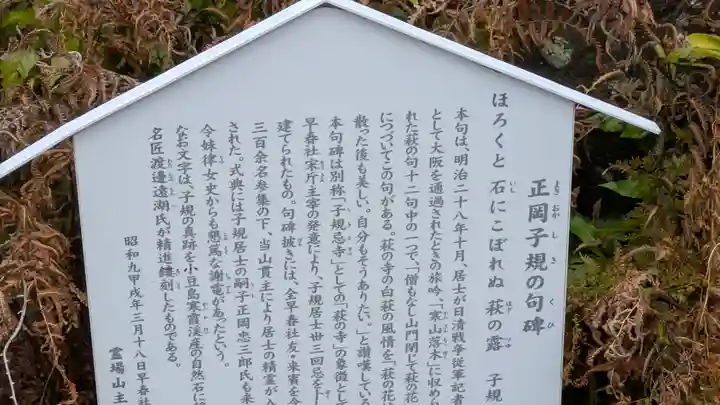 正岡子規の句碑
まさおかしきくひ
ほろくと 石にこぼれぬ 萩の露 子規
いし はぎ つゆ
本句は、明治二十八年十月、居士が日清戦争従軍記者
として大阪を通過されたときの旅吟、「寒山落木」に収めら
れた萩の句十二句中の一つで、「僧もなし山門閉じて萩の花
につづいてこの句がある。萩の寺の白萩の風情を「萩の花は
散った後も美しい。自分もそうありたい。」と讃嘆している
本句碑は別称「子規忌寺」としての「萩の寺」の象徴として
早春社
主宰の発意により、子規居士卅三回忌を
建てられたもの。句碑披きには、全早春社友・来賓を含
三百余名参集の下、当山貫主により居士の精霊が入
された。式典には子規居士の嗣子正岡忠三郎氏も来
令妹律女史からも懇篤な謝電があったという。
なお文字は、子規の真跡を小豆島寒霞渓産の自然石に
名匠渡邊遠湖氏が精進鏤刻したものである。
昭和九甲戌年三月十八日早春社
霊場山主